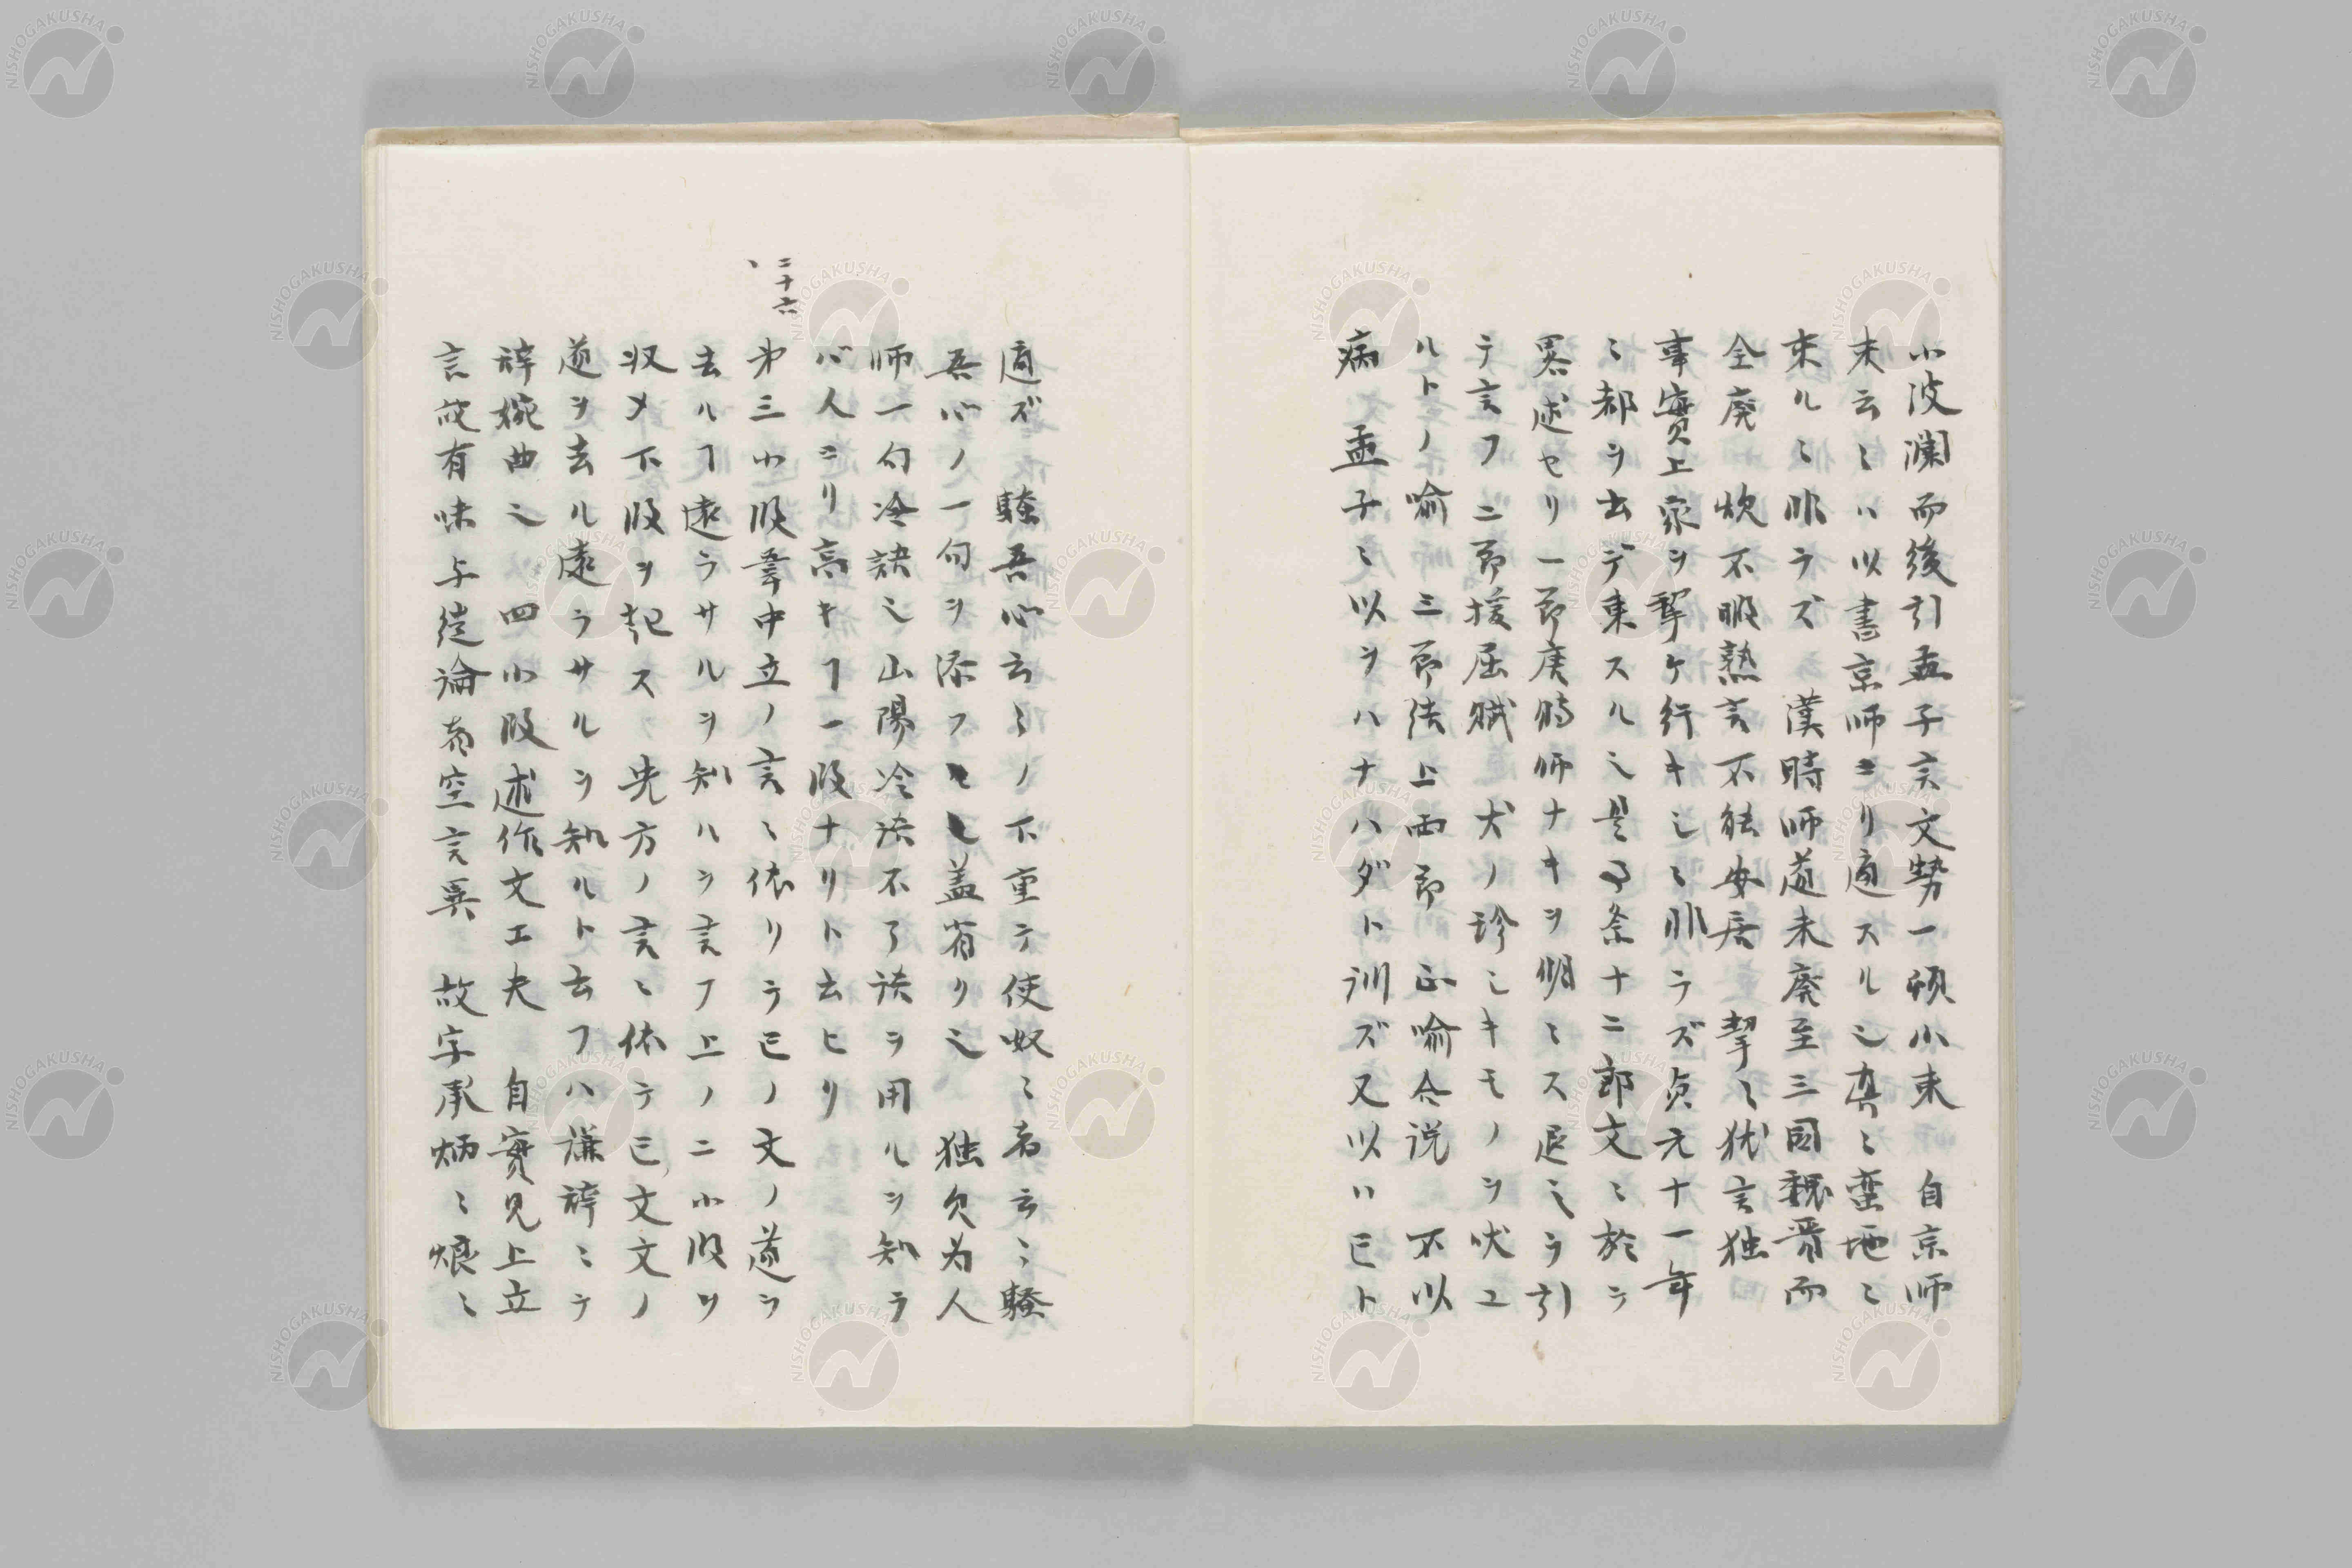 小波瀾而後引孟子言文勢一頓小束　自京師
末云ミハ以書京師ヨリ適スルミ真ミ蛮地ミ
来ルミ非ラズ　漢時師道未廃至三国魏晋而
全廃　炊不暇熟言不能安居　挈ミ犹言独
事實上家ヲ挈ケ行キシミ非ラズ貞元十一年
ミ都ヲ去デ東スルミ是条十二郎文ミ於ラ
畧述セリ一節庚時師ナキヲ明ミス返ミラ引
テ言フ二節援屈賦　犬ノ珍シキモノヲ吠ユ
ルトノ喩　三節結上両節　正喩合説　不以
病　孟子ミ以ヲハナハダト訓ズ又以ハ已ト
適ズ　騒吾心云ミノ下重テ使呶ミ者云ミ騒
吾心ノ一句ヲ添フ蓋省リミ　独欠為人
師一句冷訣ミ山陽冷語不了語ヲ用ルヲ知ラ
バ人ヨリ高キフ一段ナリト云ヒリ
二十六
第三小段峯中立ノ言ミ依リラ已ノ文ノ道ラ
去ルフ遠ラサルヲ知ハヲ言フ上ノ二小段ヲ
収メ下段ヲ起ス　先方ノ言ミ依テ已文文ノ
道ヲ去ル遠ラサルヲ知ルト云フハ謙辞ミテ
辞婉曲ミ　四小段述作文工夫　自實見上立
言故有味与徒論為空言異　故字承炳ミ烺ミ